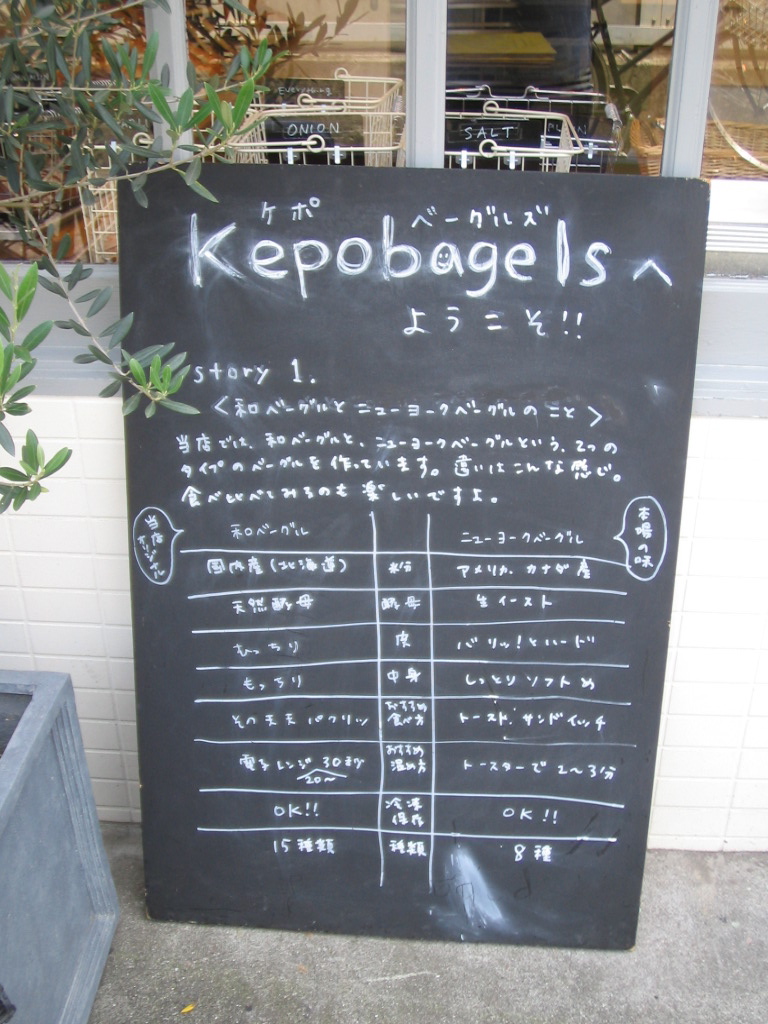 ONION
SALT
ケポ ベーグルズ
Kepobagelsへ
ようこそ!!
story 1.
<和ベーグルとニューヨークベーグルのこと>
当店では、和ベーグルと、ニューヨークベーグルという、2つの
タイプのベーグルを作っています。違いはこんな感じ。
食べ比べてみるのも楽しいですよ。
当店オリジナル
和ベーグル ニューヨークベーグル
本場の味
国内産(北海道) 粉 アメリカ、カナダ産
天然酵母 酵母 生イースト
むっちり 皮 バリッ!とハード
もっちり 中身 しっとりソフトめ
そのまま パクリッ おすすめ食べ方 トースト、サンドイッチ
電子レンジ 20~30秒 おすすめ温め方 トースターで2~3分
OK!! 冷凍保存 OK!!
15種類 種類 8種